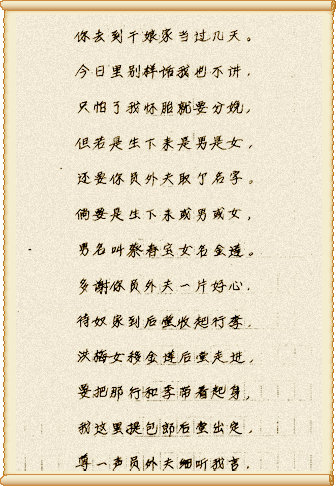 你去到干娘家当过几天。
今日里别样话我也不讲，
只怕了我怀胎就要分娩，
但若是生下来是男是女，
还要你员外夫取个名字。
倘要是生下来或男或女，
男名叫蔡春宝女名金莲。
多谢你员外夫一片好心，
待奴家到后堂收起行李，
洪梅女移金莲后堂走进，
要把那行和李带着起身，
我这里提包郎后堂出走，
尊一声员外夫细听我言，